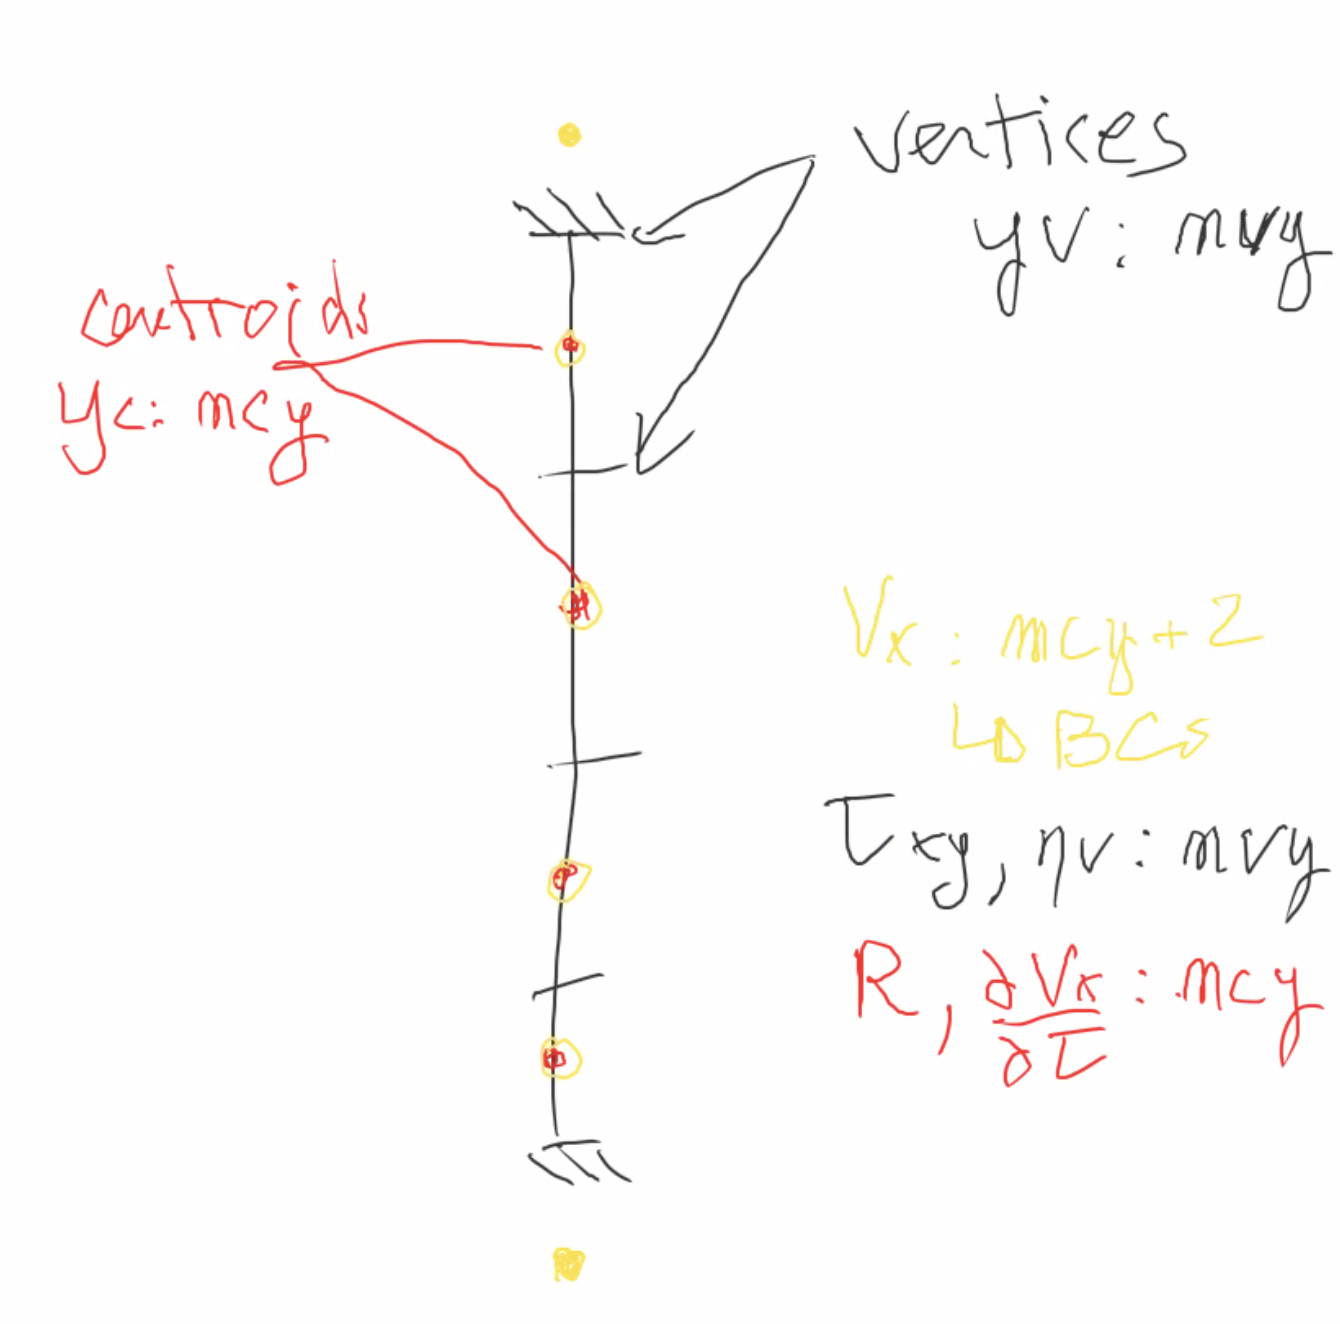 vertices
yv: nvy
centroids
yc: ncy
Vx: ncy+2
↳ BCs
τxy, ηv: nvy
R, ∂Vx/∂τ: ncy